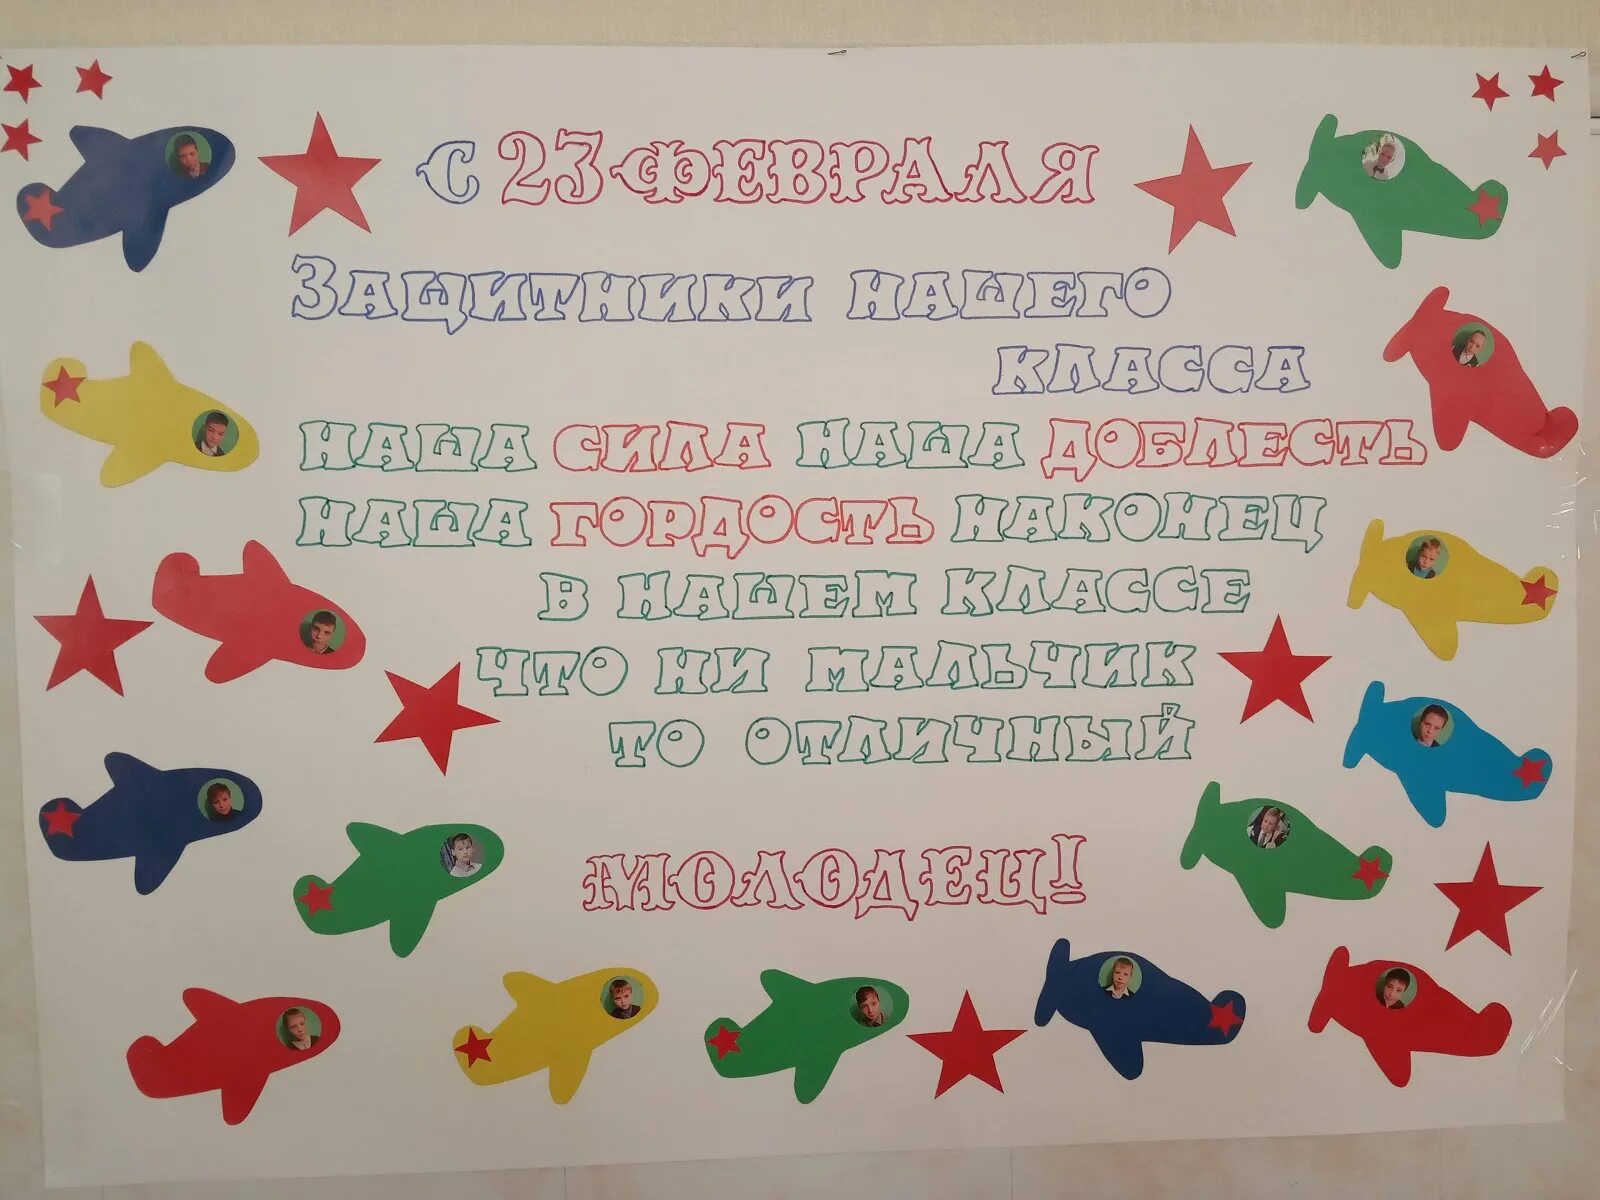 С 23 ФЕВРАЛЯ
ЗАЩИТНИКИ НАШЕГО
КЛАССА
НАША СИЛА НАША ДОБЛЕСТЬ
НАША ГОРДОСТЬ НАКОНЕЦ
В НАШЕМ КЛАССЕ
ЧТО НИ МАЛЬЧИК
ТО ОТЛИЧНЫЙ
МОЛОДЕЦ!